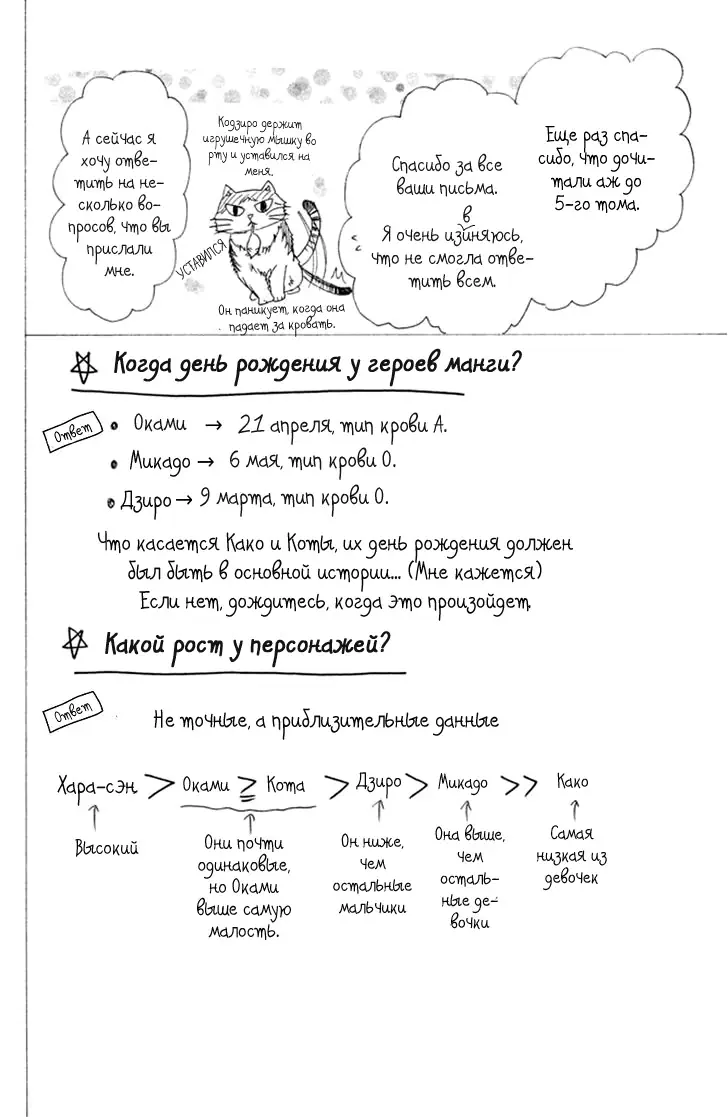 Еще раз спа-
сибо, что дочи-
тали аж до
5-го тома.
Спасибо за все
ваши письма.
в
Я очень изиняюсь,
что не смогла отве-
тить всем.
Кодзиро держит
игрушечную мышку во
рту и уставился на
меня.
УСТАВИЛСЯ
Он паникует, когда она
падает за кровать.
А сейчас я
хочу отве-
тить на не-
сколько во-
просов, что вы
прислали
мне.
Когда день рождения у героев манги?
Ответ
• Оками → 21 апреля, тип крови А.
• Микадо → 6 мая, тип крови О.
• Дзиро → 9 марта, тип крови О.
Что касается Како и Коты, их день рождения должен
был быть в основной истории... (Мне кажется)
Если нет, дождитесь, когда это произойдет.
Какой рост у персонажей?
Ответ
Не точные, а приблизительные данные
Хара-сэн > Оками ≧ Кота > Дзиро > Микадо >> Како
Высокий
Они почти
одинаковые,
но Оками
выше самую
малость.
Он ниже,
чем
остальные
мальчики
Она выше,
чем
осталь-
ные де-
вочки
Самая
низкая из
девочек